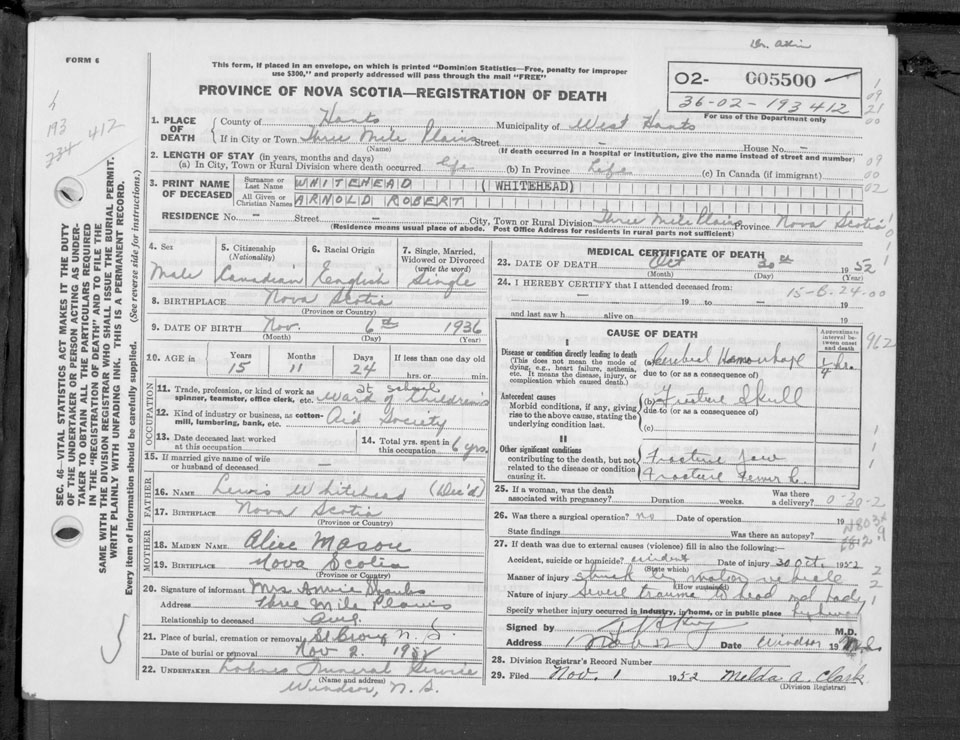 Dr. Atkin
FORM 6
This form, if placed in an envelope, on which is printed "Dominion Statistics—Free, penalty for improper
use $300," and properly addressed will pass through the mail "FREE"
PROVINCE OF NOVA SCOTIA—REGISTRATION OF DEATH
O2- 005500
36-02-193412
For use of the Department only
193 412
334
1. PLACE OF DEATH
County of Hants Municipality of West Hants
If in City or Town Three Mile Plains Street - House No. -
(Name) (If death occurred in a hospital or institution, give the name instead of street and number)
2. LENGTH OF STAY (in years, months and days)
(a) In City, Town or Rural Division where death occurred life (b) In Province Life (c) In Canada (if immigrant)
3. PRINT NAME OF DECEASED
Surname or Last Name WHITEHEAD (WHITEHEAD)
All Given or Christian Names ARNOLD ROBERT
RESIDENCE No. - Street - City, Town or Rural Division Three Mile Plains Province Nova Scotia
(Residence means usual place of abode. Post Office Address for residents in rural parts not sufficient)
4. Sex Male
5. Citizenship (Nationality) Canadian
6. Racial Origin English
7. Single, Married, Widowed or Divorced (write the word) Single
8. BIRTHPLACE Nova Scotia
(Province or Country)
9. DATE OF BIRTH Nov. 6th 1936
(Month) (Day) (Year)
10. AGE in Years 15 Months 11 Days 24 If less than one day old
hrs. or min.
OCCUPATION
11. Trade, profession, or kind of work as spinner, teamster, office clerk, etc. at school
Ward of Children's
12. Kind of industry or business, as cotton-mill, lumbering, bank, etc. Aid Society
13. Date deceased last worked at this occupation
14. Total yrs. spent in this occupation 6 yrs.
15. If married give name of wife or husband of deceased —
FATHER
16. Name Lewis Whitehead (Dec'd)
17. BIRTHPLACE Nova Scotia
(Province or Country)
MOTHER
18. MAIDEN NAME Alice Mason
19. BIRTHPLACE Nova Scotia
(Province or Country)
20. Signature of informant Mrs Annie
Address Three Mile Plains
Relationship to deceased
21. Place of burial, cremation or removal St Croix N. S.
Date of burial or removal Nov 2. 1952
22. UNDERTAKER Lohnes Funeral Service
(Name and address)
Windsor, N. S.
MEDICAL CERTIFICATE OF DEATH
23. DATE OF DEATH Oct 30th 1952
(Month) (Day) (Year)
24. I HEREBY CERTIFY that I attended deceased from: 15-B.24-00
— 19 to — 19
and last saw h alive on 19
CAUSE OF DEATH
Approximate interval between onset and death
I
Disease or condition directly leading to death
(This does not mean the mode of dying, e.g., heart failure, asthenia, etc. It means the disease, injury, or complication which caused death.)
(a) Cerebral Hemorrhage 1/4 hr.
due to (or as a consequence of)
962
Antecedent causes
Morbid conditions, if any, giving rise to the above cause, stating the underlying condition last.
(b) Fracture Skull
due to (or as a consequence of)
(c)
II
Other significant conditions
contributing to the death, but not related to the disease or condition causing it.
Fracture Jaw
Fracture Femur L.
25. If a woman, was the death associated with pregnancy? Duration weeks. Was there a delivery? 0-30-2
26. Was there a surgical operation? no Date of operation 19
State findings Was there an autopsy?
N803
27. If death was due to external causes (violence) fill in also the following:—
Accident, suicide or homicide? accident Date of injury 30 Oct. 1952
(State which)
Manner of injury struck by motor vehicle
(How sustained)
Nature of injury Severe trauma to head and body
Specify whether injury occurred in industry, in home, or in public place highway
Signed by M.D.
Address Date Windsor 19
28. Division Registrar's Record Number
29. Filed Nov. 1 1952 Melda A. Clark
(Division Registrar)
SEC. 46—VITAL STATISTICS ACT MAKES IT THE DUTY
OF THE UNDERTAKER OR PERSON ACTING AS UNDER-
TAKER TO OBTAIN ALL THE PARTICULARS REQUIRED
IN THE "REGISTRATION OF DEATH" AND TO FILE THE
SAME WITH THE DIVISION REGISTRAR WHO SHALL ISSUE THE BURIAL PERMIT.
WRITE PLAINLY WITH UNFADING INK. THIS IS A PERMANENT RECORD.
Every item of information should be carefully supplied. (See reverse side for instructions.)